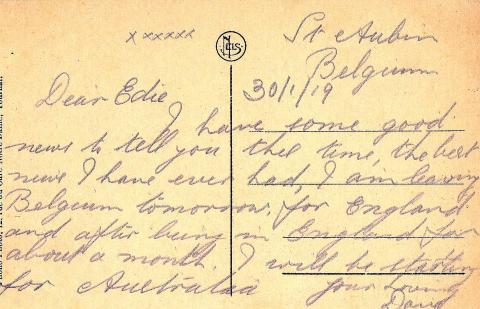 x xxxxxx
NELS
St Aubin
Belgium
30/1/19
Dear Edie
I have some good
news to tell you this time, the best
news I have ever had, I am leaving
Belgium tomorrow, for England
and after being in England for
about a month I will be starting
for Australia
your Loving
Dave